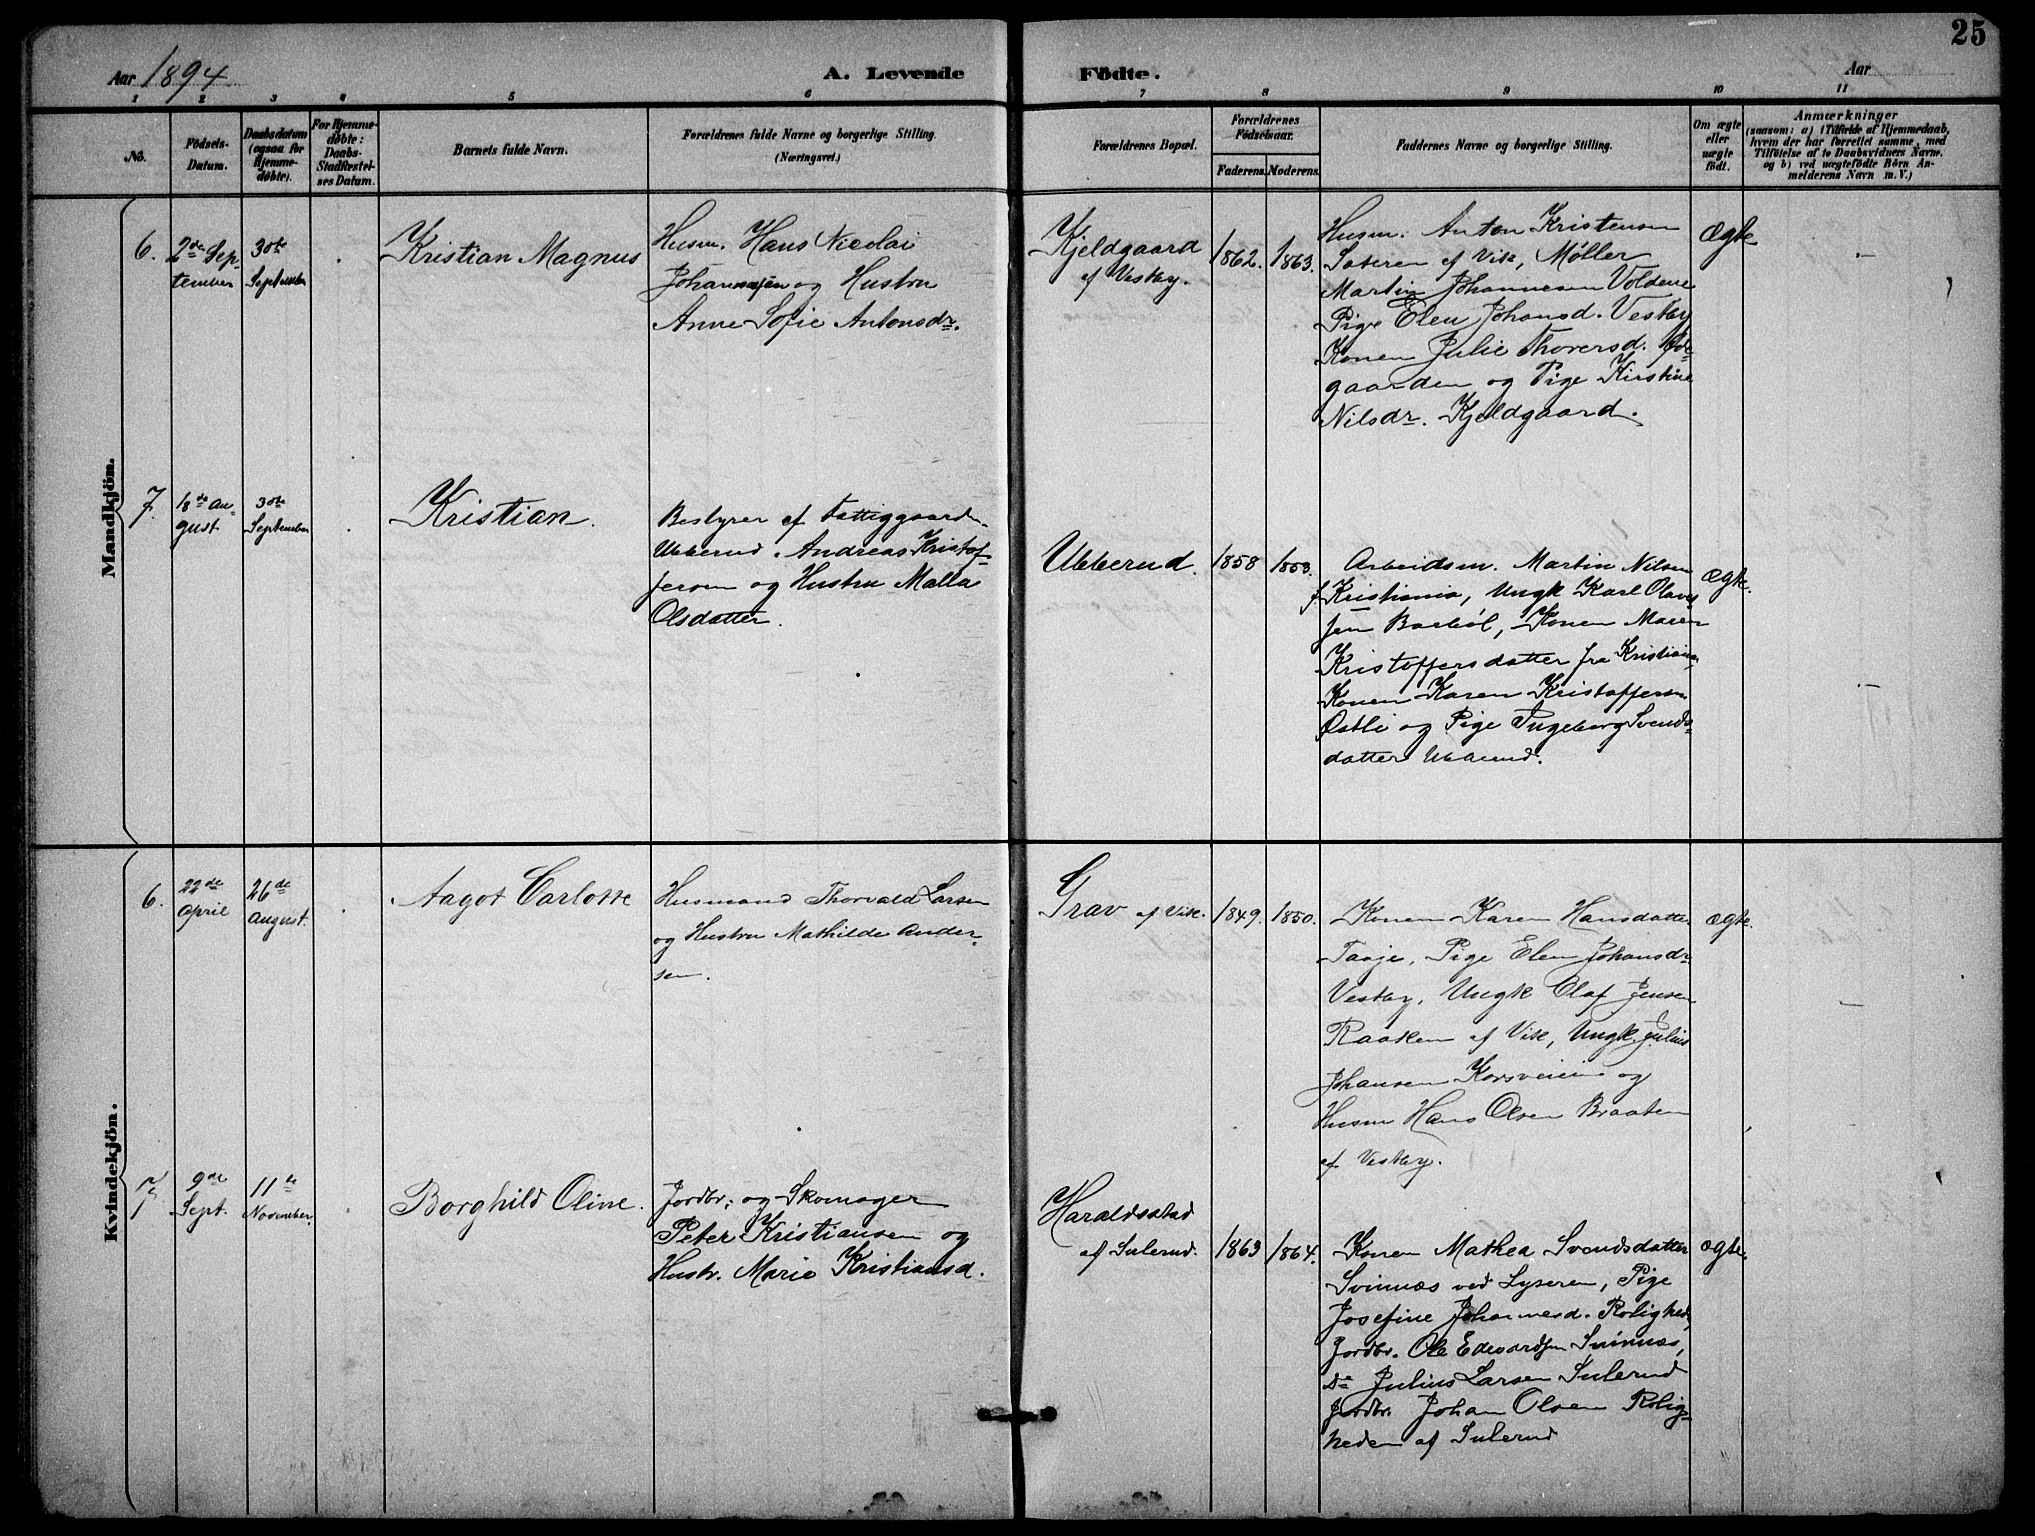 25
Aar 1894
A. Levende
Födte.
Aar
1 2 3 4 5 6 7 8 9 10 11
No.
Födsels-
Datum.
Daabsdatum
(ogsaa for
Hjemme-
döbte).
For Hjemme-
döbte:
Daabs-
Stadfæstel-
ses Datum.
Barnets fulde Navn.
Forældrenes fulde Navne og borgerlige Stilling.
(Næringsvei.)
Forældrenes Bopæl.
Forældrenes
Födselsaar.
Faderens. Moderens.
Faddernes Navne og borgerlige Stilling.
Om ægte
eller
uægte
födt.
Anmærkninger
(saasom: a) i Tilfælde af Hjemmedaab,
hvem der har forrettet samme, med
Tilföielse af to Daabsvidners Navne,
og b) ved uægtefödte Börn An-
melderens Navn m. V.)
Mandkjön.
6.
2de Sep-
tember
30te
September
Kristian Magnus
Husm. Hans Nicolai
Johannesen og Hustru
Anne Sofie Antonsdr.
Kjeldgaard
af Vestby.
1862.
1863.
Husm. Anton Kristensen
Sateren af Vik, Møller
Martin Johannesen Voldene
Pige Elen Johansd. Vestby
Konen Julie Thoversd. Øde-
gaarden og Pige Kirstine
Nilsdr. Kjeldgaard.
Ægte
7.
18de Au-
gust
30te
September
Kristian.
Bestyrer af Fattiggaarden
Ubberud. Andreas Kristof-
fersen og Hustru Malla
Olsdatter.
Ubberud.
1858
1853.
Arbeidsm. Martin Nilsen
f. Kristiania, Ungk Karl Olaves-
sen Barbøl, Konen Maren
Kristoffersdatter fra Kristiania,
Konen Karen Kristoffersen
Østli og Pige Ingeborg Svends-
datter Ubberud.
Ægte.
Kvindekjön.
6.
22de
April
26de
August.
Aagot Carlotte
Husmand Thorvald Larsen
og Hustru Mathilde Ander-
sen.
Grav af Vik.
1849.
1850.
Konen Karen Hansdatter
Taaje, Pige Elen Johansdr
Vestby, Ungk Olaf Jensen
Raaken af Vik, Ungk. Julius
Johansen Korsveien og
Husm Hans Olsen Braaten
af Vestby.
ægte.
7
9de
Sept.
11te
November.
Borghild Oline.
Jordbr. og Skomager
Peter Kristiansen og
Hustr. Marie Kristiansd.
Haraldsstad
af Sulerud.
1863
1864.
Konen Mathea Svendsdatter
Svinnæs ved Lyseren, Pige
Josefine Johannesd. Roligheden,
Jordbr. Ole Edvardsen Svinnæs,
Do Julius Larsen Sulerud
Jordbr. Johan Olsen Rolig-
heden af Sulerud
ægte.